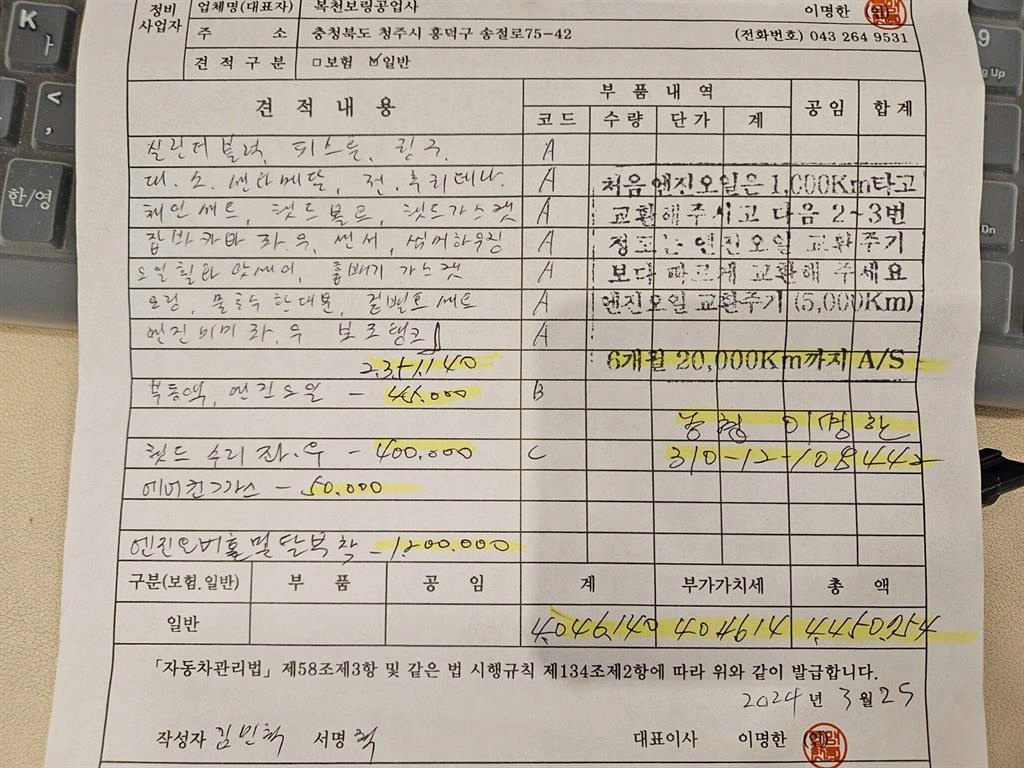 정비 사업자 업체명(대표자) 복천보링공업사 이명한 (인)
주 소 충청북도 청주시 흥덕구 송절로75-42 (전화번호) 043 264 9531
견적구분 □보험 ☑일반
견 적 내 용 부 품 내 역 공임 합계
코드 수량 단가 계
실린더 블럭, 피스톤, 링구. A
대.소.센타메달, 전.후리데나. A 처음 엔진오일은 1,000Km타고
체인세트, 헷드볼트, 헷드가스켓 A 교환해주시고 다음 2~3번
잠바카바 좌.우, 센서, 섬머하우징 A 정도는 엔진오일 교환주기
오일휠타 앗세이, 홉빼기 가스켓 A 보다 빠르게 교환해 주세요
오링, 물호수 한대분, 겉벨트세트 A 엔진오일 교환주기 (5,000Km)
엔진미미 좌.우 보조탱크 A
6개월 20,000Km까지 A/S
부동액, 엔진오일 - 45.000 B
농협 이명한
헷드 수리 좌.우 - 400.000 C 310-12-108442
에어컨가스 - 50.000
엔진오버홀 및 탈부착 - 1.200.000
구분(보험.일반) 부 품 공 임 계 부가가치세 총 액
일반 4046140 404614 4450754
「자동차관리법」 제58조제3항 및 같은 법 시행규칙 제134조제2항에 따라 위와 같이 발급합니다.
2024년 3월 25
작성자 김민혁 서명 혁 대표이사 이명한 (인)
K
ㅏ
<
,
한/영
9
Pg Up
Dn